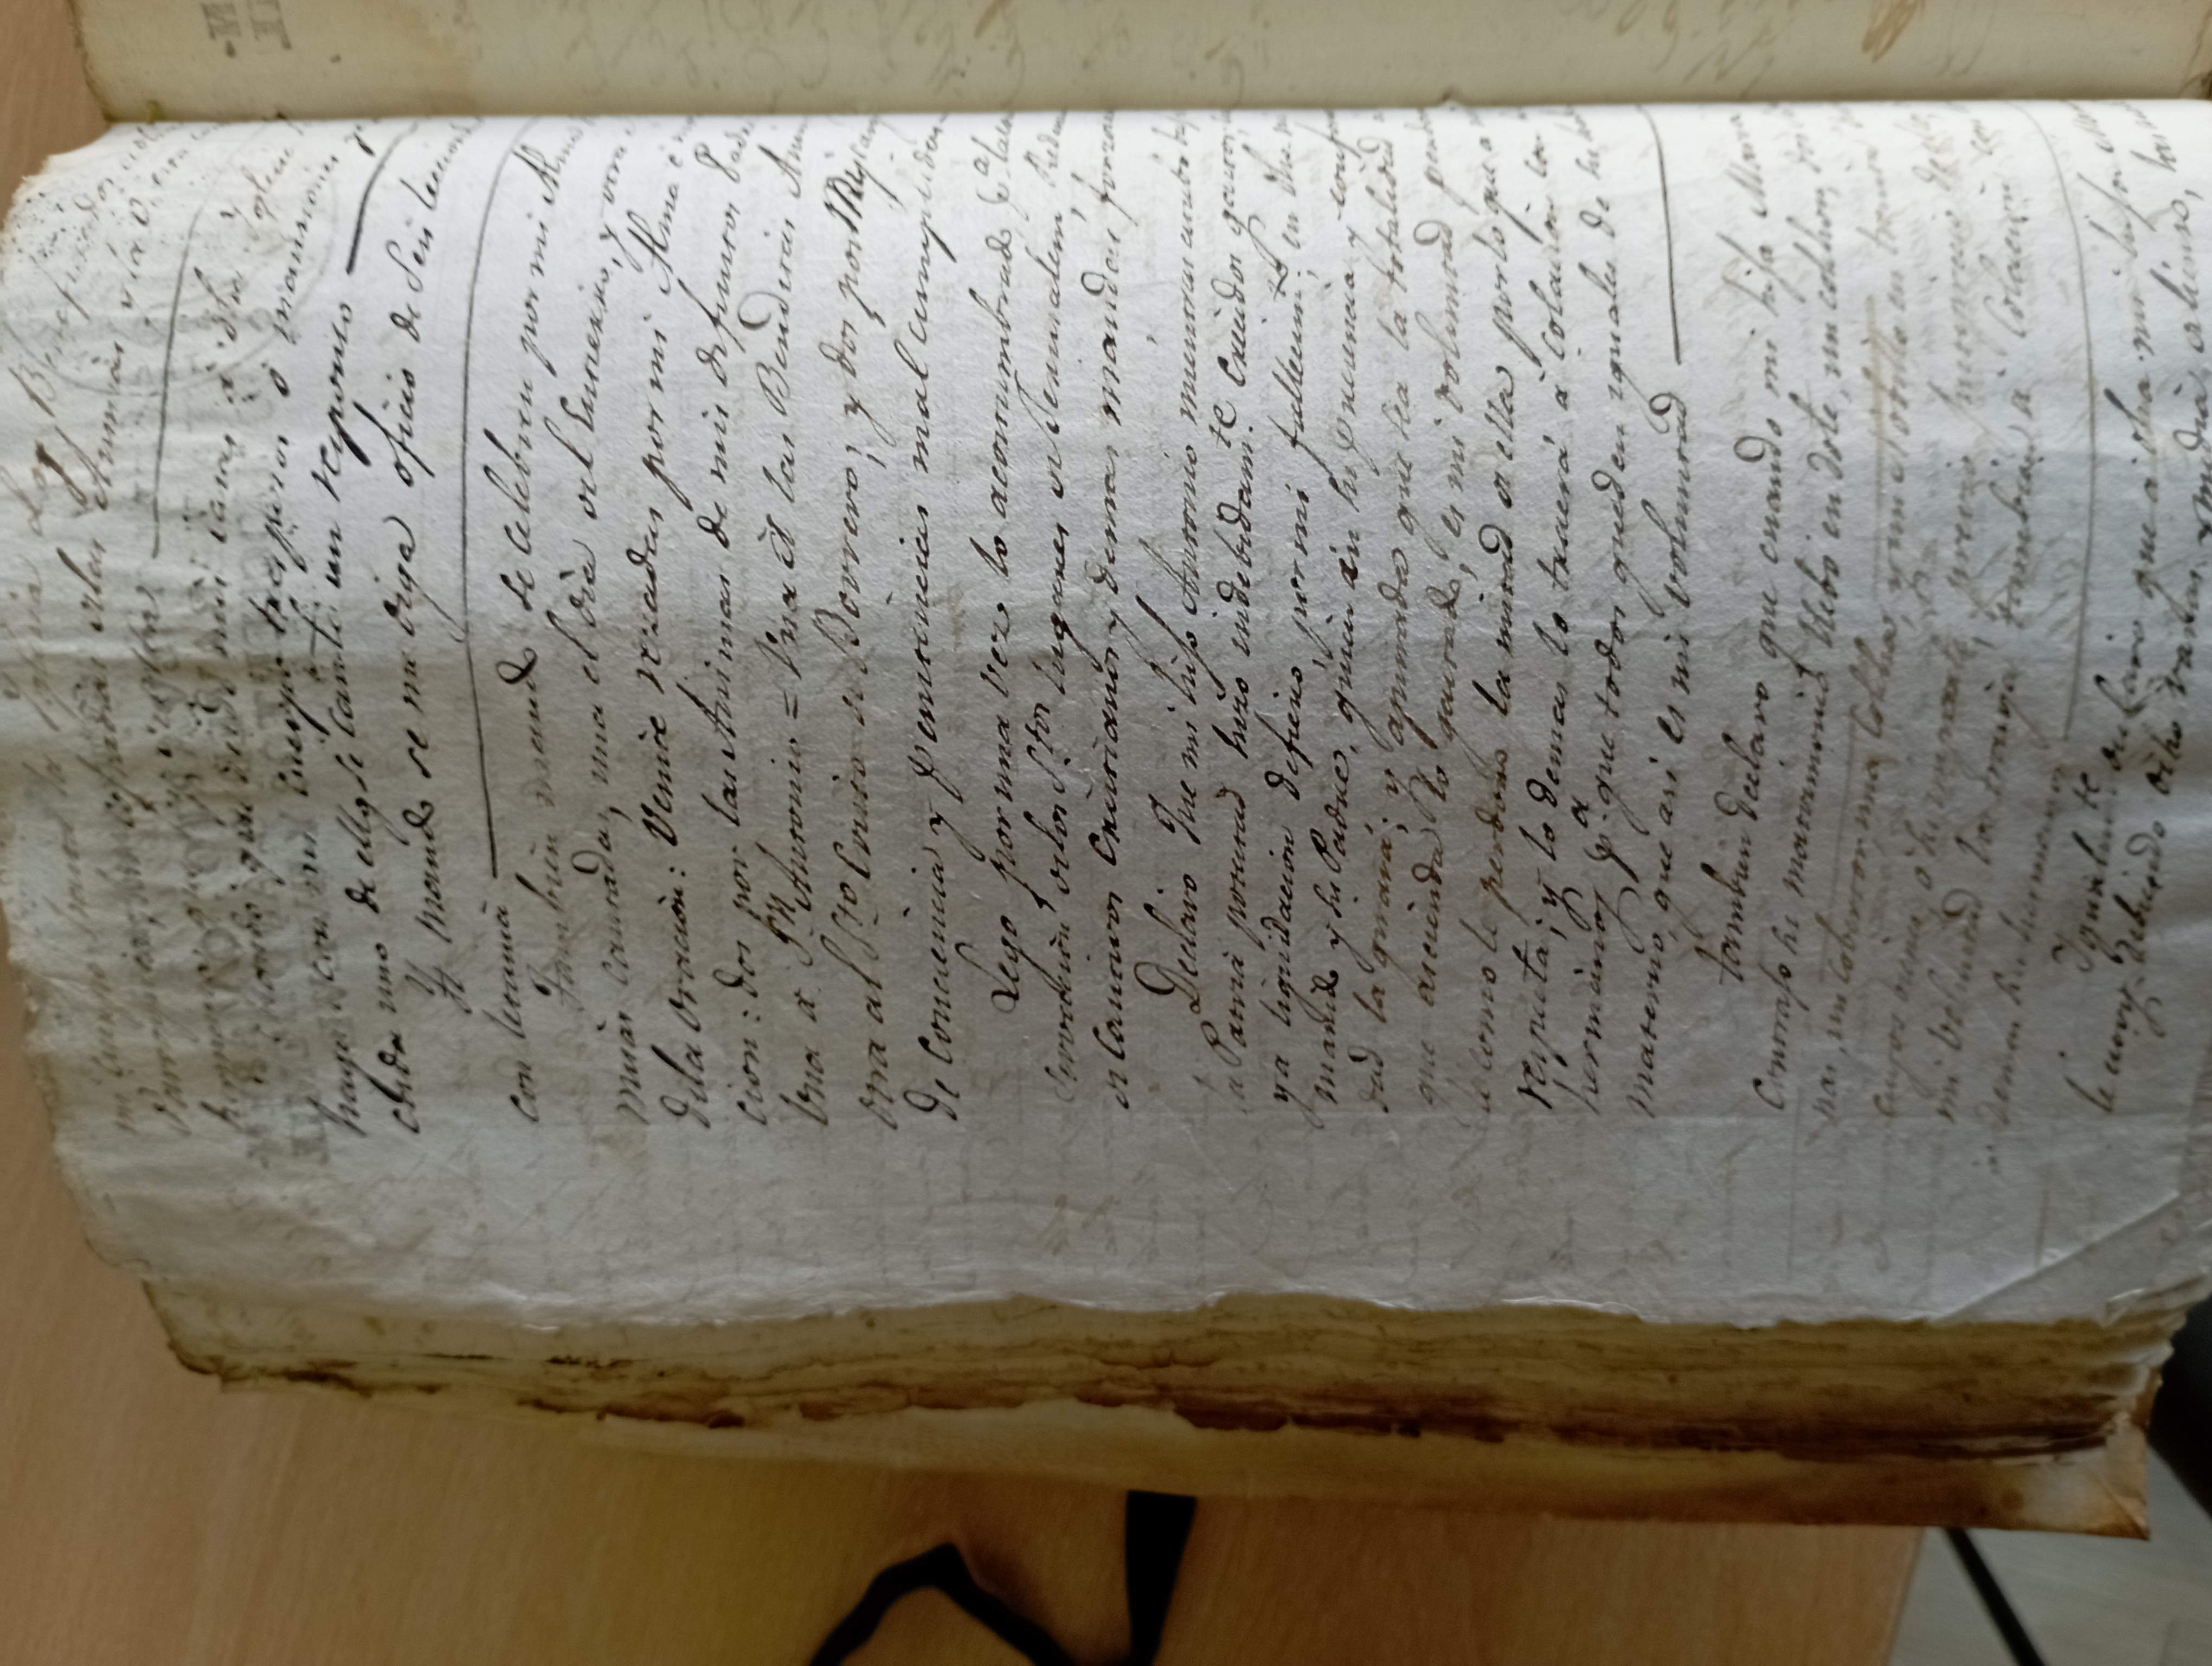 mi cuerpo hasta la Iglesia los Beneficiados
Parroquia, las cofradias delas Animas y la
hermana que soy de ella
mando que desde mis casas á dha. Iglecia
haga con mi cuerpo tres posas ó mansiones y
cada uno de ellos se cante un responso
Yt. mando se me diga oficio de Seis leccion
con letania
Tambien mando se celebren por mi Alma
misas cantadas, una el dia del Entierro, y otra
dela Oracion: Veinte rezadas por mi Alma é
cion: dos por las Animas de mis difuntos Padr
Una á Sn. Antonio = Una á las Benditas Anim
otra al Sto. Cristo de Borrero; y dos por
de conciencia y penitencias mal cumplidas
Lego por una vez lo acostumbrado pa. la
servacion delos Stos. lugares de Jerusalem, Reden
de Cautivos Cristianos y demas mandas forzo
Declaro Que mi hijo Antonio mientras estubo
la Patria potestad hizo indebidamte. crecidos gastos,
ya liquidacion defiero, por mi fallecimto. en dho. mi
marido y su Padre, quien en su presencia y conf
dad la girará; y apurada que sea la totalidad
que ascienda lo gastado, es mi voluntad perdo
le como le perdono la mitad de ella por lo que a
respecta; y lo demas lo traerá á colacion con
hermanos pa. que todos queden iguales de su
materno, que asi es mi voluntad
tambien declaro que cuando mi hija Maria
Contrajo su matrimonio llebó en dote, un colchon, dos
nas, un cobertor, una Colcha, y un Nobillo en treinta
cuyos bienes, ó su importe, previo justiprecio de ellos,
mi voluntad los traiga tambien á Colacion con
demas sus hermanos
Igualmte. declaro que á dha. mi hija
le estoy debiendo ocho varas y media de lienso, las